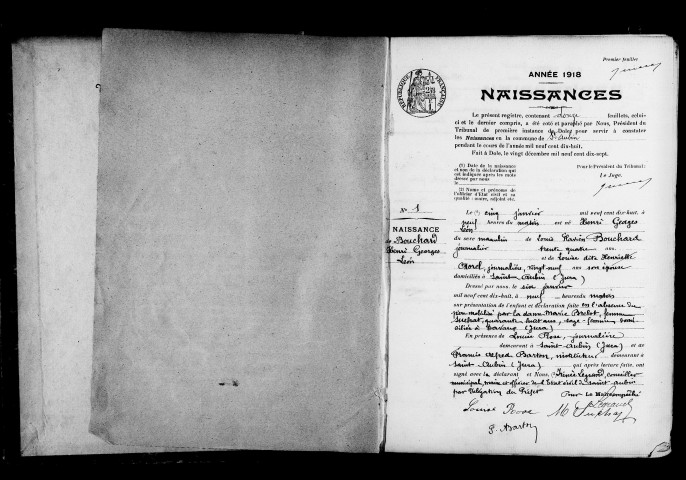 Premier feuillet
ANNÉE 1918
RÉPUBLIQUE FRANÇAISE
NAISSANCES
Le présent registre, contenant douze feuillets, celui-
ci et le dernier compris, a été coté et paraphé par Nous, Président du
Tribunal de première instance de Dole, pour servir à constater
les Naissances en la commune de St Aubin
pendant le cours de l'année mil neuf cent dix-huit.
Fait à Dole, le vingt décembre mil neuf cent dix-sept.
(1) Date de la naissance
et non de la déclaration qui
est indiquée après les mots
dressé par nous
le
(2) Nom et prénoms de
l'officier d'Etat civil et sa
qualité : maire, adjoint etc.
Pour le Président du Tribunal :
Le Juge.
No 1
NAISSANCE
de Bouchard
Henri Georges
Léon
Le (1) cinq janvier mil neuf cent dix-huit, à
neuf heures du matin est né Henri Georges
Léon
du sexe masculin de Louis Xavier Bouchard
journalier trente quatre ans.
et de Louise dite Henriette
Morel, journalière, vingt-neuf ans son épouse
domiciliés à Saint-Aubin (Jura)
Dressé par nous, le six janvier
mil neuf cent dix-huit, à neuf heures du matin
sur présentation de l'enfant et déclaration faite en l'absence du
père mobilisé par la dame Marie Brelot, femme
quarante huit ans, sage-femme, domi
ciliée à Tavaux (Jura)
En présence de Louise Rose, journalière
demeurant à Saint-Aubin (Jura) et de
Francis Alfred Barton, instituteur demeurant à
Saint-Aubin (Jura) qui après lecture faite, ont
signé avec la déclarant et Nous, (2) Legrand, conseiller
municipal, maire et officier de l'Etat civil de Saint-Aubin
par délégation du Préfet Pour Le Maire empêché
Louise Rose M
F. Barton